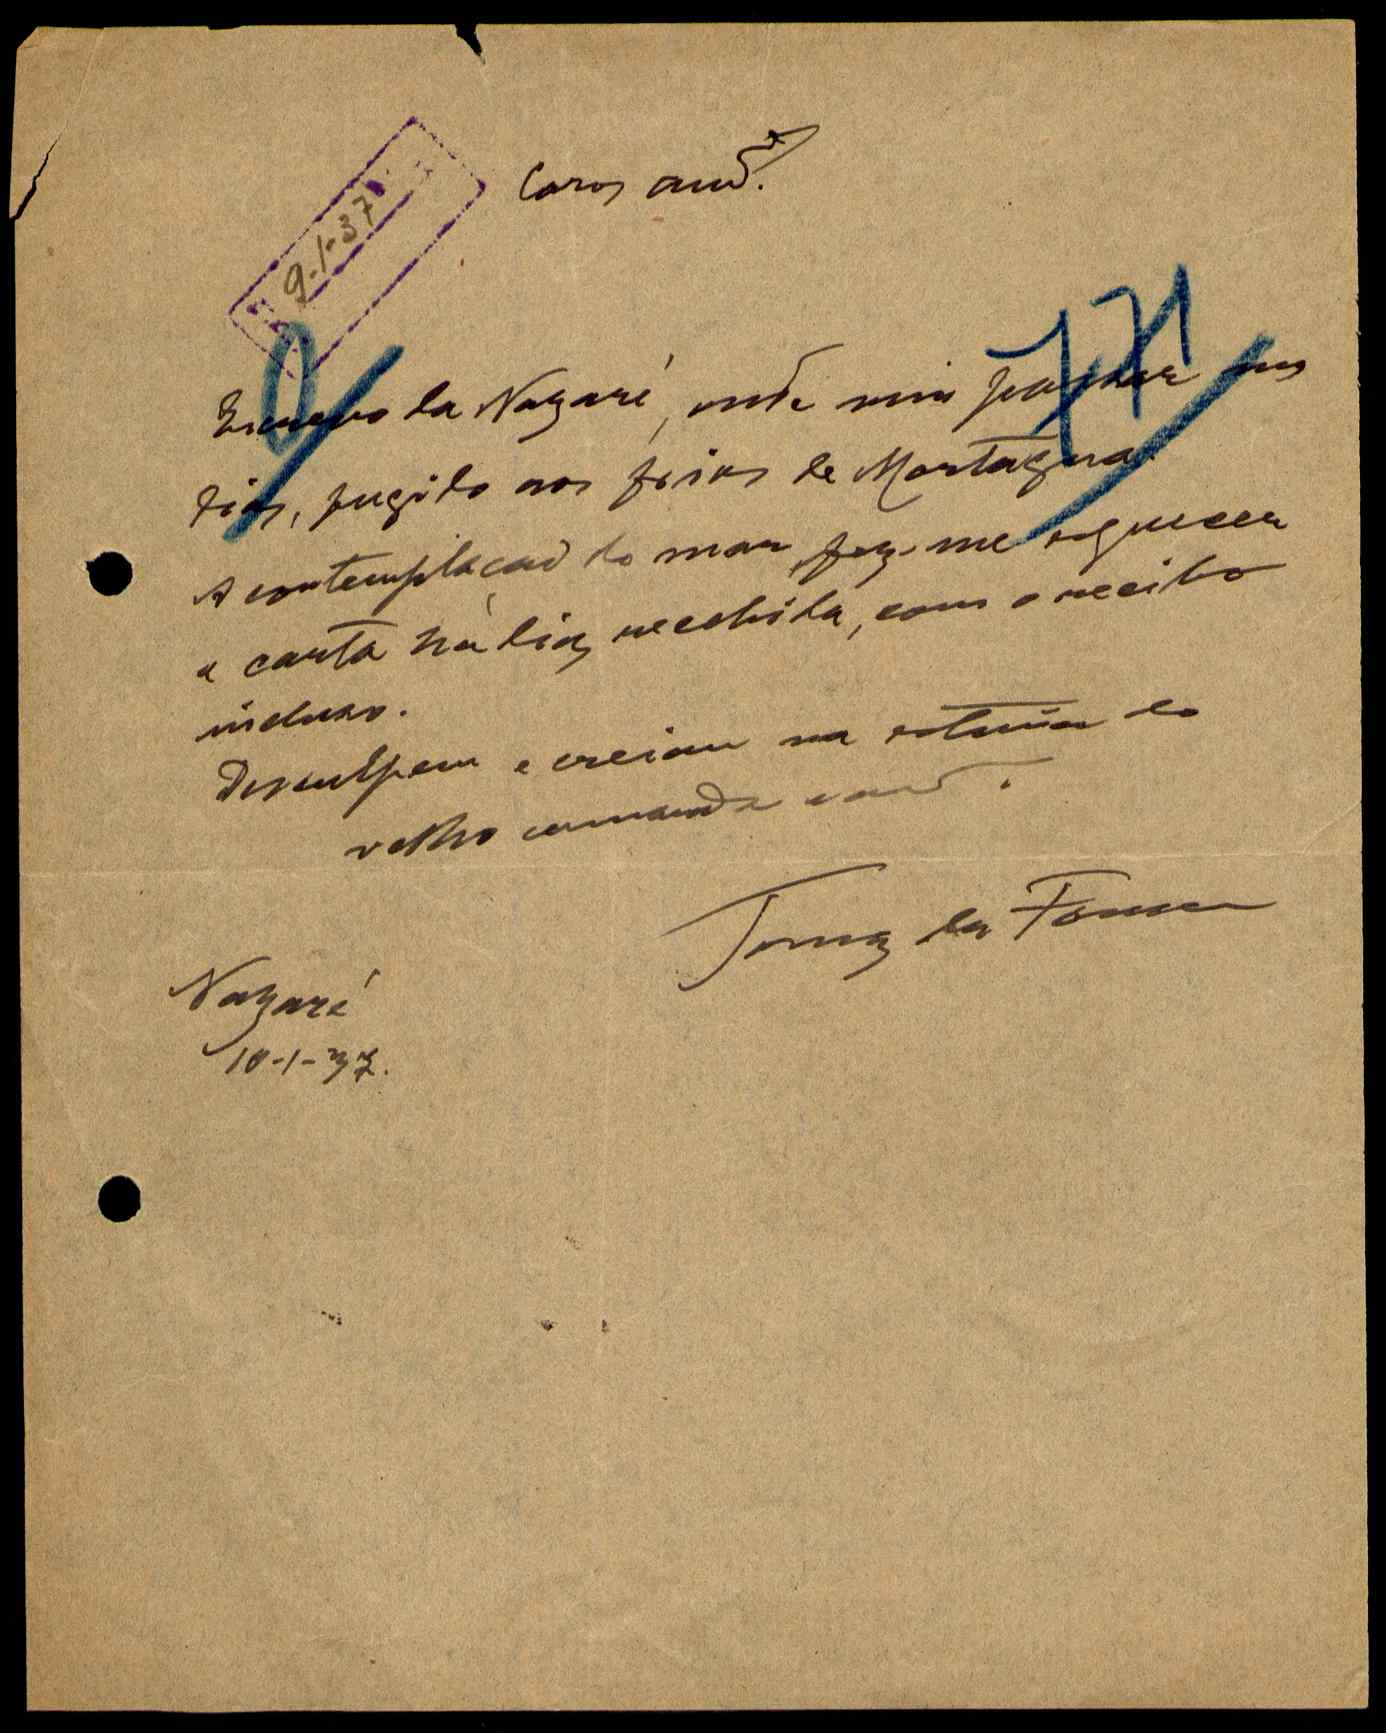 Caros am.ᵒˢ
9-1-37
771
Escrevo da Nazaré, onde vim passar uns
dias, fugido aos frios de Mortágua.
A contemplação do mar fez-me esquecer
a carta há dias recebida, com o recibo
incluso.
Desculpem e creiam na estima do
velho camarada e am.º
Tomaz da Fonseca
Nazaré
10-1-37.